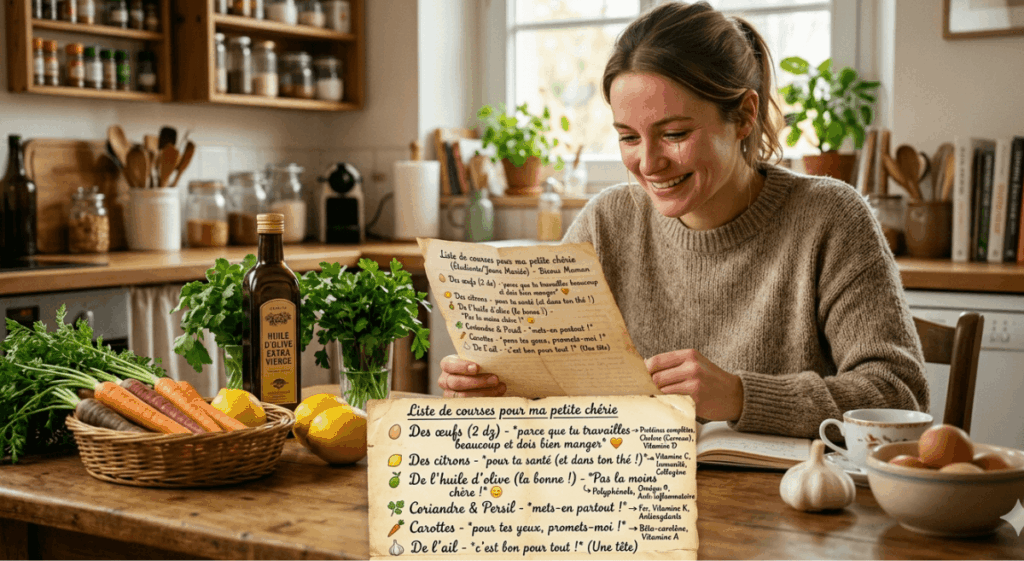 HUILE D'OLIVE
EXTRA
VIERGE
Liste de courses pour ma petite chérie
(Étudiante/Jeune Mariée) - Bisous Maman
Des œufs (2 dz) - *parce que tu travailles beaucoup
et dois bien manger* 🧡
Des citrons - *pour ta santé (et dans ton thé !)
De l'huile d'olive (la bonne !)
*Pa la moins chère !*
Coriandre & Persil - *mets-en partout !*
Carottes - *pens tes yeux, promets-moi !*
De l'ail - *c'est bon pour tout !* (Une tête)
Liste de courses pour ma petite chérie
🥚 Des œufs (2 dz) - *parce que tu travailles → Protéines complètes,
beaucoup et dois bien manger* 🧡 Choline (Cerveau),
Vitamine D
🍋 Des citrons - *pour ta santé (et dans ton thé !)* → Vitamine C,
Immunité,
Collagène
De l'huile d'olive (la bonne !) - *Pas la moins
chère !* 😊 ↳ Polyphénols, Oméga
Anti-inflammatoire
🌿 Coriandre & Persil - *mets-en partout !* → Fer, Vitamine K,
Antioxydants
🥕 Carottes - *pour tes yeux, promets-moi !* → Bêta-carotène,
Vitamine A
🧄 De l'ail - *c'est bon pour tout !* (Une tête)